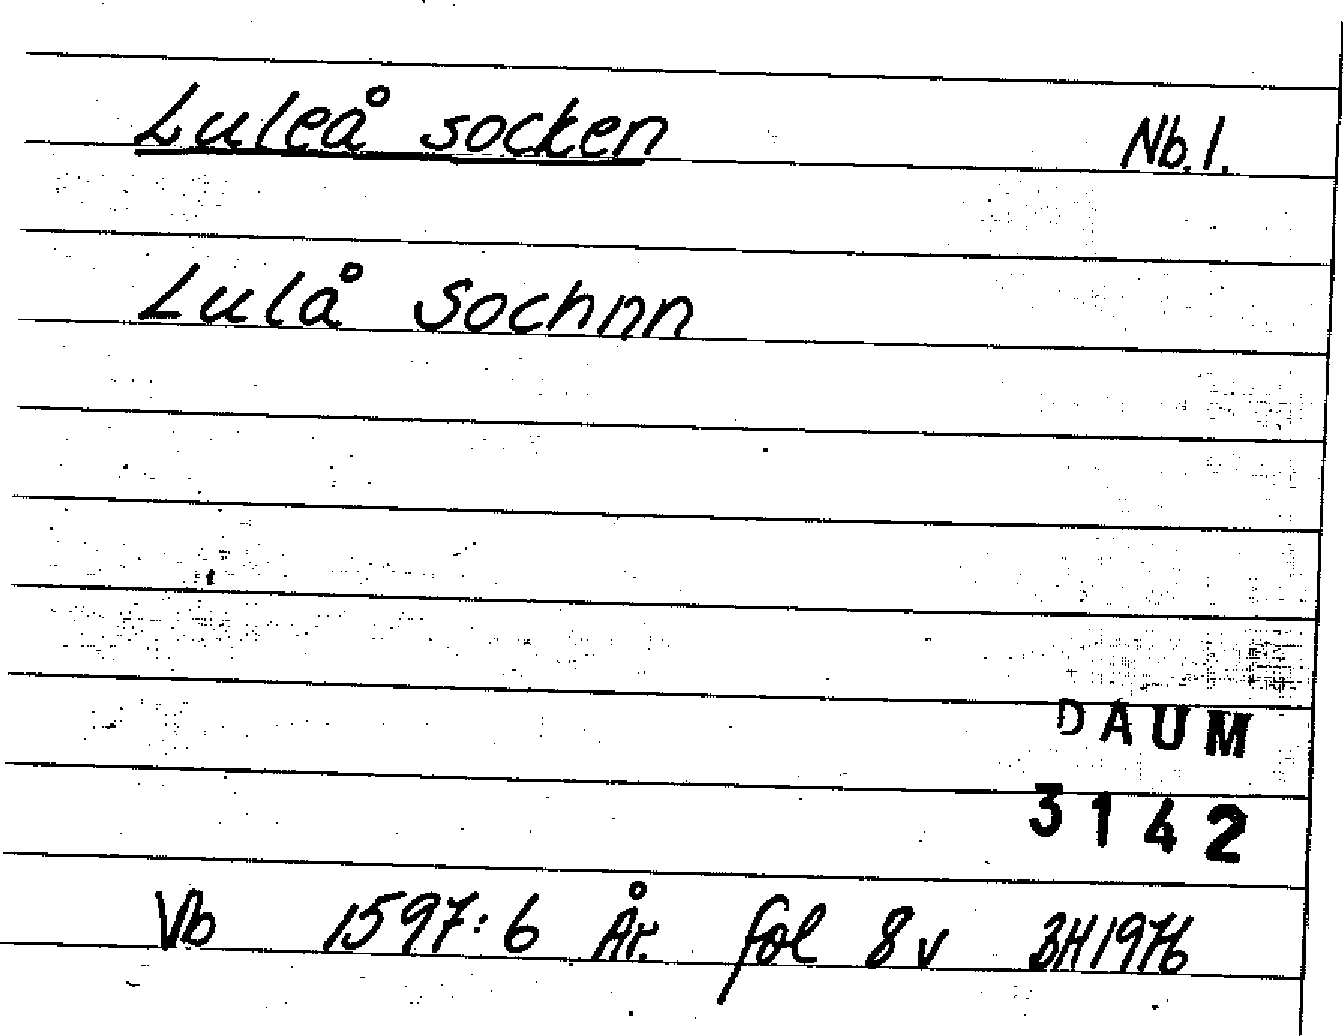 Luleå socken Nb.l.
Lulå Sochnn
DAUM
3142
Vb 1597:6 År. fol 8v BH1976